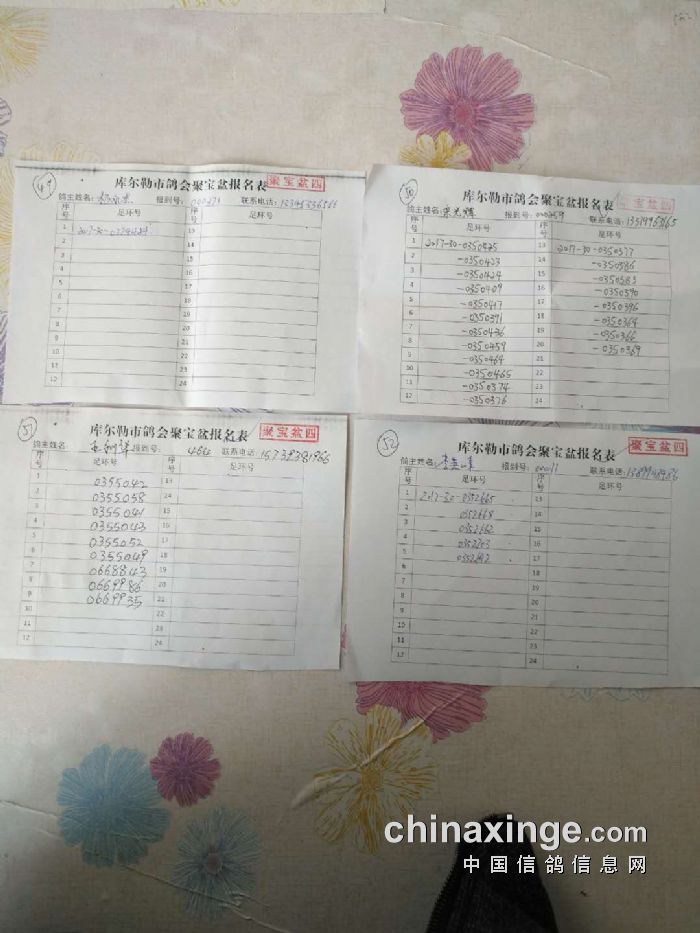 49
库尔勒市鸽会聚宝盆报名表 聚宝盆四
鸽主姓名: 报到号: 联系电话:
序号 足环号 序号 足环号
1 13
2 14
3 15
4 16
5 17
6 18
7 19
8 20
9 21
10 22
11 23
12 24
50
库尔勒市鸽会聚宝盆报名表 聚宝盆四
鸽主姓名: 报到号: 联系电话:
序号 足环号 序号 足环号
1 2017-30-0350425 13 2017-30-0350377
2 -0350423 14 -0350386
3 -0350424 15 -0350383
4 -0350409 16 -0350390
5 -0350417 17 -0350396
6 -0350391 18 -0350364
7 -0350436 19 -0350366
8 -0350459 20 -0350369
9 -0350464 21
10 -0350465 22
11 -0350374 23
12 -0350376 24
51
库尔勒市鸽会聚宝盆报名表 聚宝盆四
鸽主姓名: 报到号: 464 联系电话: 15739381966
序号 足环号 序号 足环号
1 0355042 13
2 0355058 14
3 0355041 15
4 0355043 16
5 0355052 17
6 0355049 18
7 0668843 19
8 0669986 20
9 0669935 21
10 22
11 23
12 24
52
库尔勒市鸽会聚宝盆报名表 聚宝盆四
鸽主姓名: 报到号: 联系电话:
序号 足环号 序号 足环号
1 2017-30-0352665 13
2 0352668 14
3 0352662 15
4 16
5 17
6 18
7 19
8 20
9 21
10 22
11 23
12 24
chinaxinge.com
中国信鸽信息网